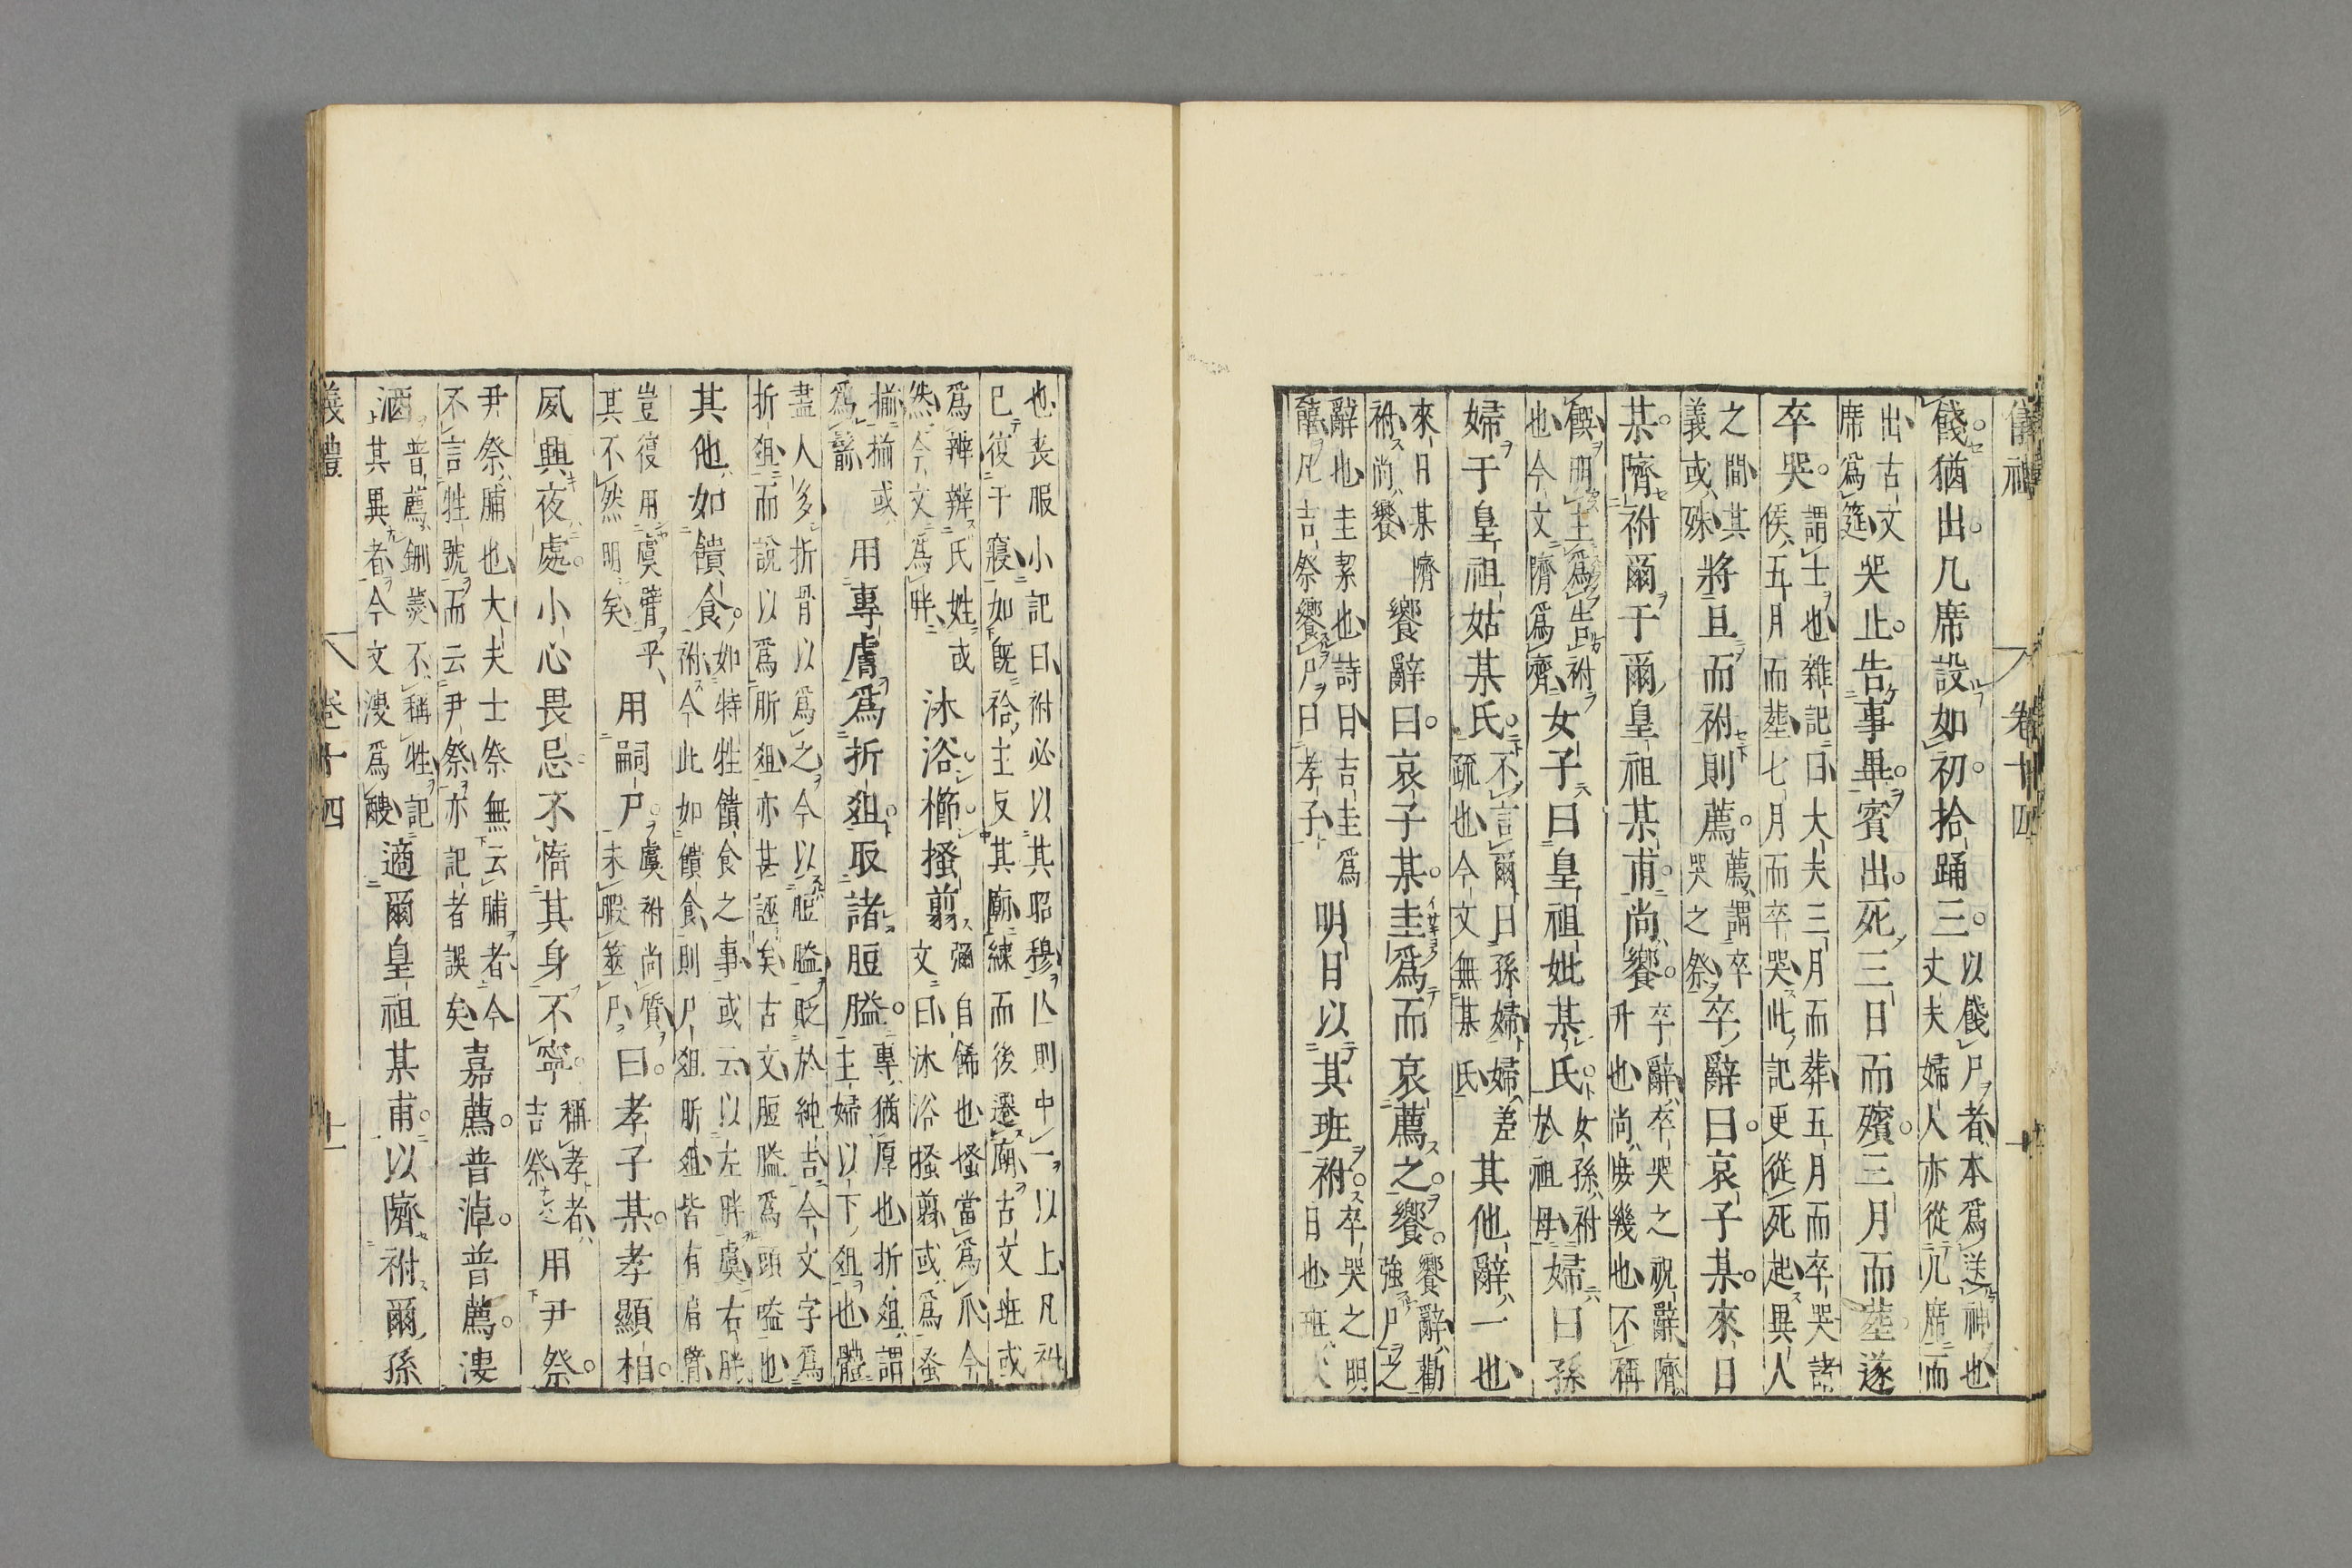 儀禮 卷十四
餞猶出几席設如初拾踊三
以餞尸者本爲送神也
丈夫婦人亦從几席而
出古文
席爲筵
哭止告事畢賓出死三日而殯三月而塟遂
卒哭
謂士也雜記曰大夫三月而葬五月而卒哭諸
侯五月而塟七月而卒哭此記更從死起異人
之間其
義或殊
將旦而祔則薦
薦謂卒
哭之祭
卒辭曰哀子某來日
某隮祔爾于爾皇祖某甫尚饗
卒辭卒哭之祝辭隮
升也尚庶幾也不稱
饌明主爲告祔
也今文隮爲齊
女子曰皇祖妣某氏
女孫祔
於祖母
婦曰孫
婦于皇祖姑某氏
不言爾曰孫婦婦差
疏也今文無某氏
其他辭一也
來日某隮
祔尚饗
饗辭曰哀子某圭爲而哀薦之饗
饗辭勸
強尸之
辭也圭絜也詩曰吉圭爲
饎凡吉祭饗尸曰孝子
明日以其班祔
卒哭之明
日也班次
也喪服小記曰祔必以其昭穆亾則中一以上凡祔
已復于寢如既祫主反其廟練而後遷廟古文班或
爲辨辨氏姓或
然今文爲胖
沐浴櫛搔翦
彌自餙也搔當爲爪今
文曰沐浴搔翦或爲蚤
揃揃或
爲鬋
用專膚爲折俎取諸脰膉
專猶厚也折俎謂
主婦以下俎也體
盡人多折骨以爲之今以脰膉貶於純吉今文字爲
折俎而說以爲肵俎亦甚誣矣古文脰膉爲頭嗌也
其他如饋食
如特牲饋食之事或云以左胖虞右胖
祔今此如饋食則尸俎肵俎皆有肩臂
豈復用虞臂乎
其不然明矣
用嗣尸
虞祔尚質
未暇筮尸
曰孝子某孝顯相
夙興夜處小心畏忌不惰其身不寧
稱孝者
吉祭
用尹祭
尹祭脯也大夫士祭無云脯者今
不言牲號而云尹祭亦記者誤矣
嘉薦普淖普薦溲
酒
普薦鉶羹不稱牲記
其異者今文溲爲醙
適爾皇祖某甫以隮祔爾孫
義禮 卷十四 十一